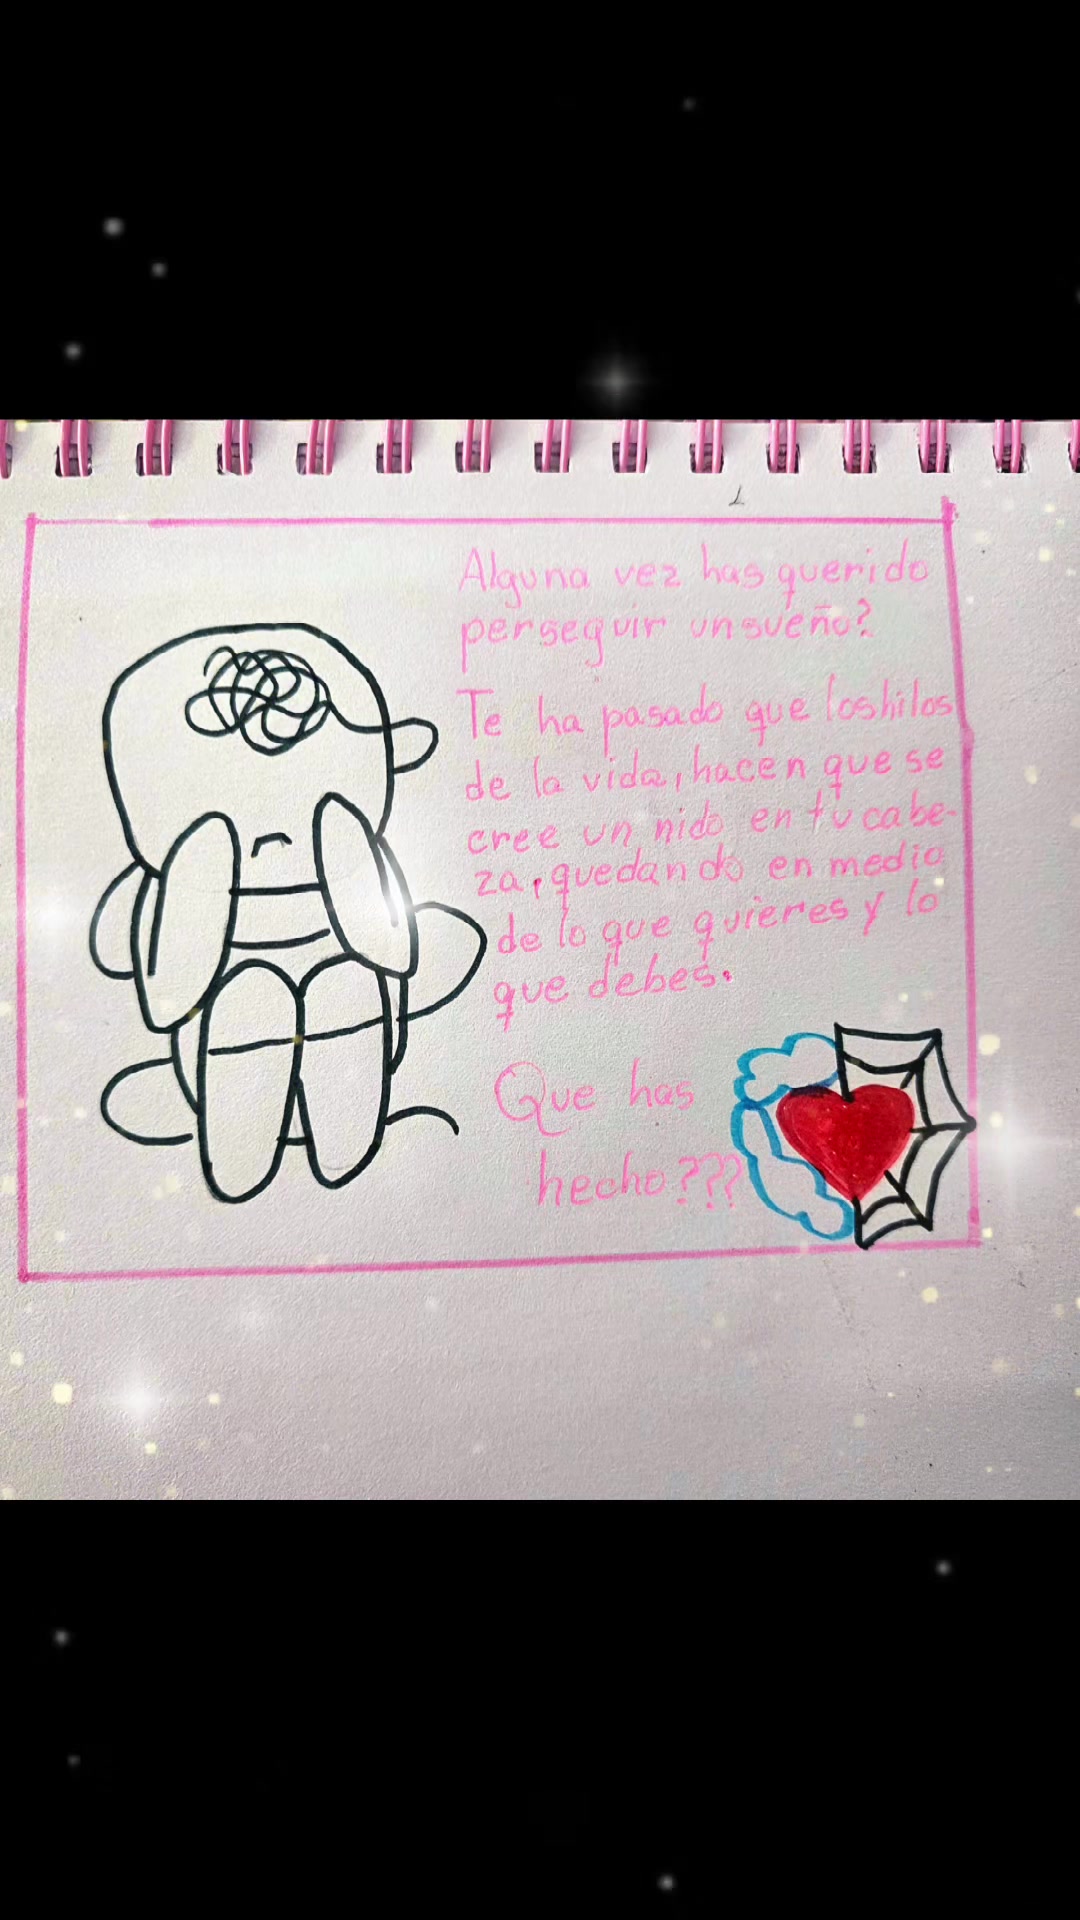 1
Alguna vez has querido
perseguir un sueño?
Te ha pasado que los hilos
de la vida, hacen que se
cree un nido en tu cabe-
za, quedando en medio
de lo que quieres y lo
que debes.
Que has
hecho???